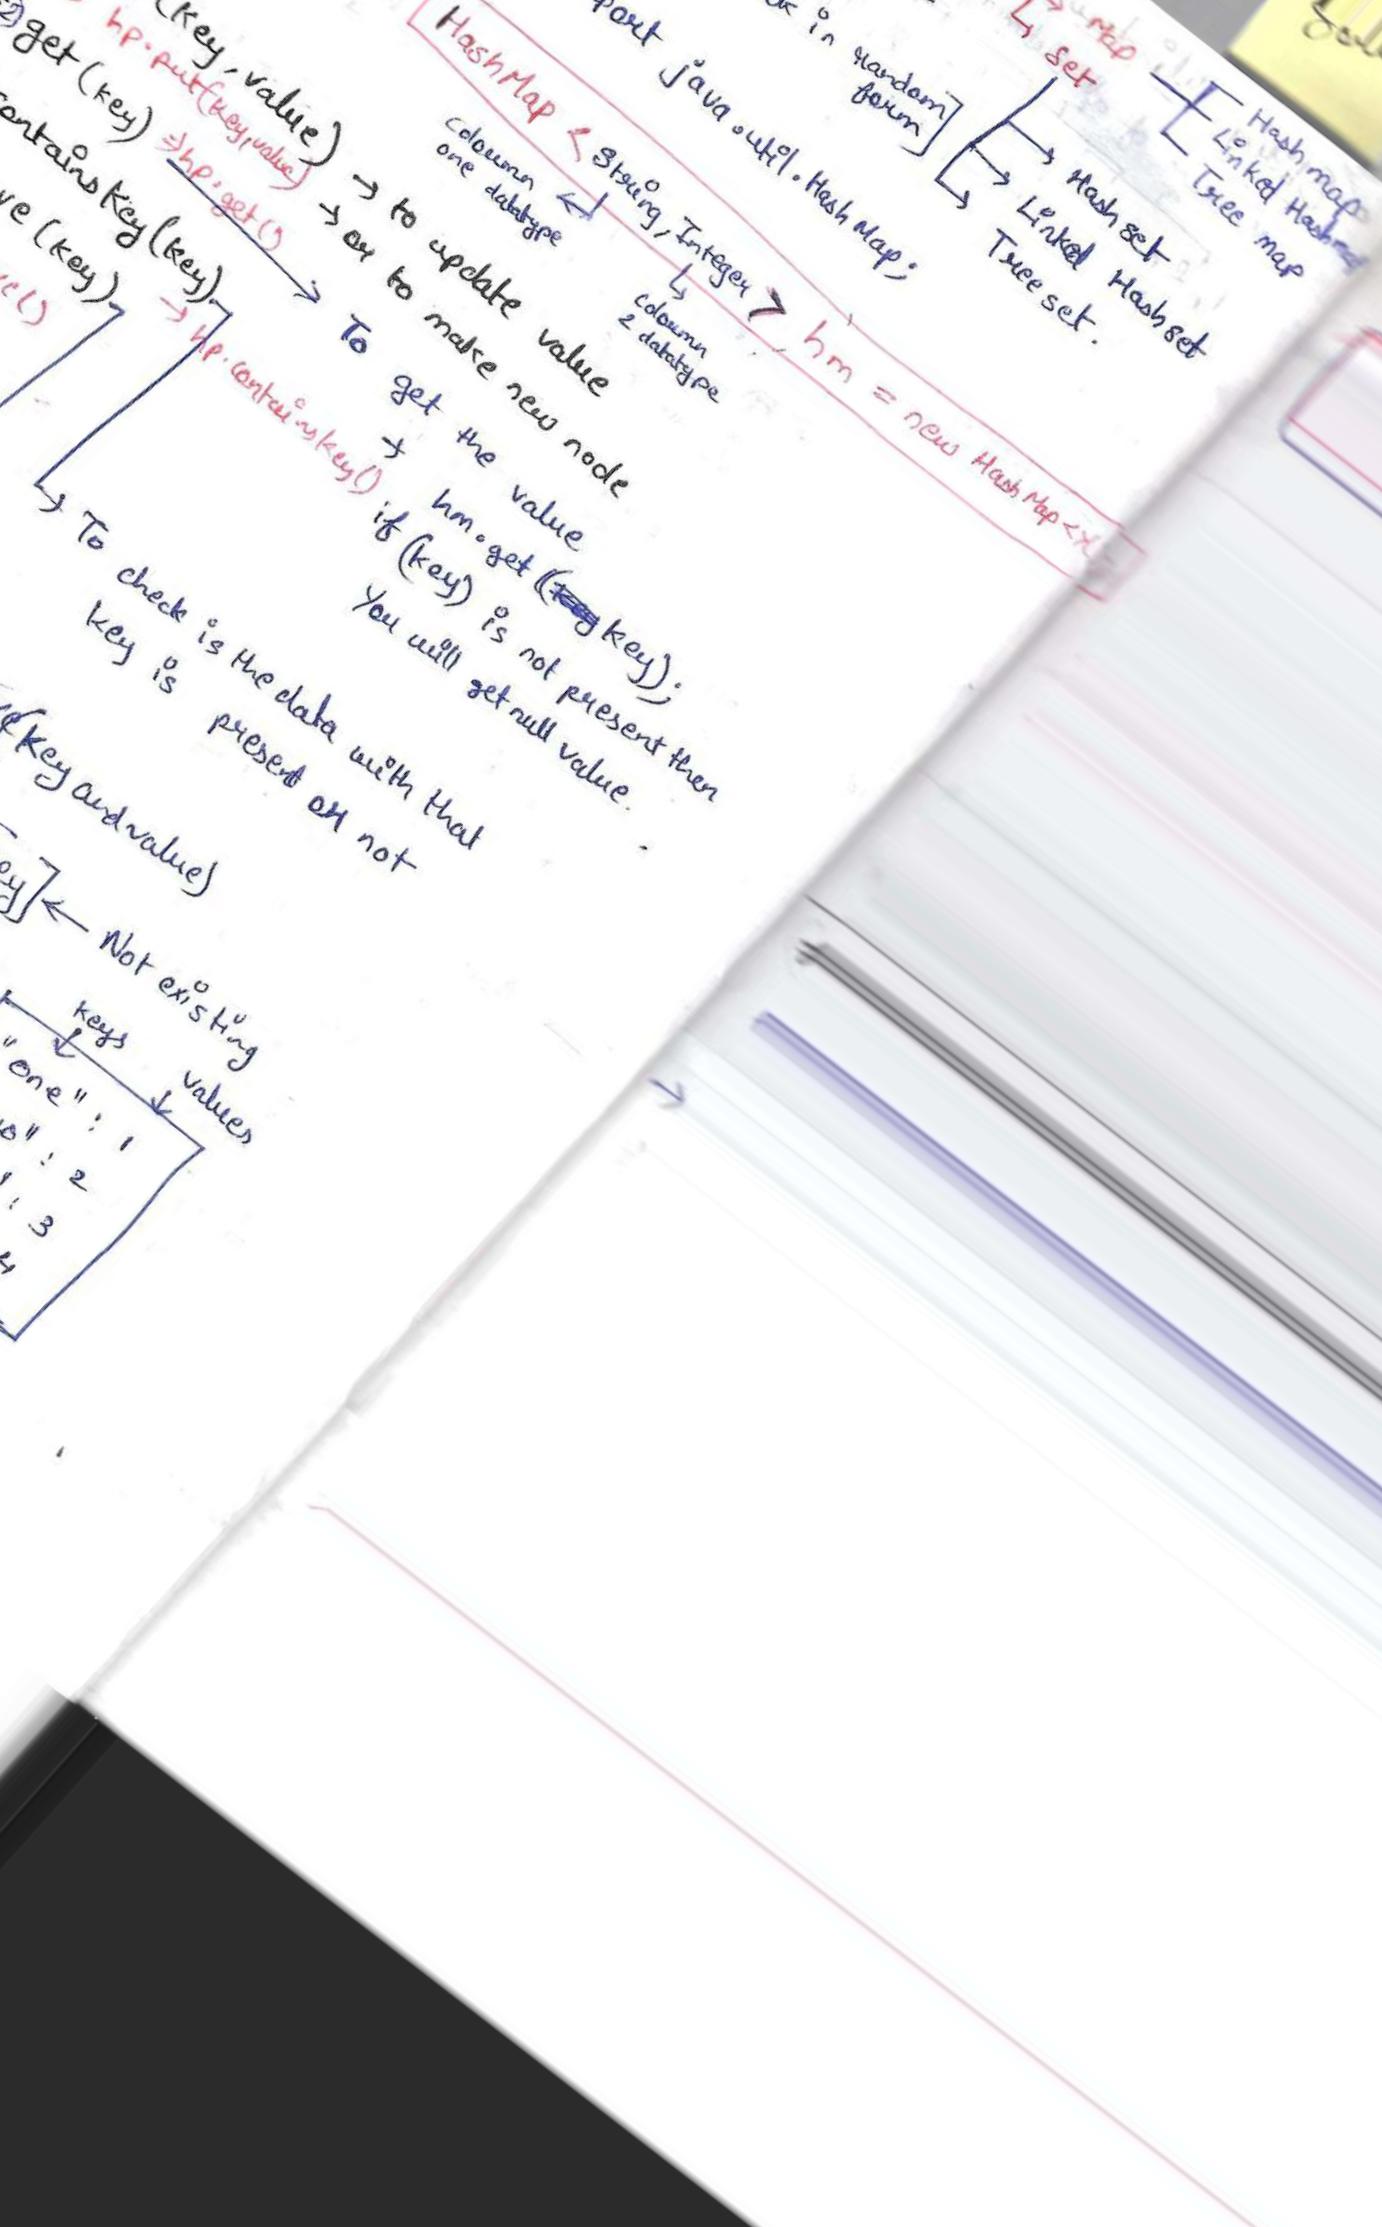 map
Hash map
Linked Hashmap
Tree map
set
Hash set
Linked Hashset
Tree set.
in random
form]
java.util.HashMap;
HashMap < String, Integer > hm = new HashMap<
coloumn
one datatype
coloumn
2 datatype
(key, value) → to update value
→ or to make new node
hp.put(key,value)
② get (key)
⇒ hp.get()
To get the value
→ hm.get((key);
if (key) is not present then
You will get null value.
containsKey(key)
→ hp.containskey()
(key)
To check is the data with that
key is present or not
(key and value)
← Not existing
keys
values
"one" : 1
: 2
: 3
4